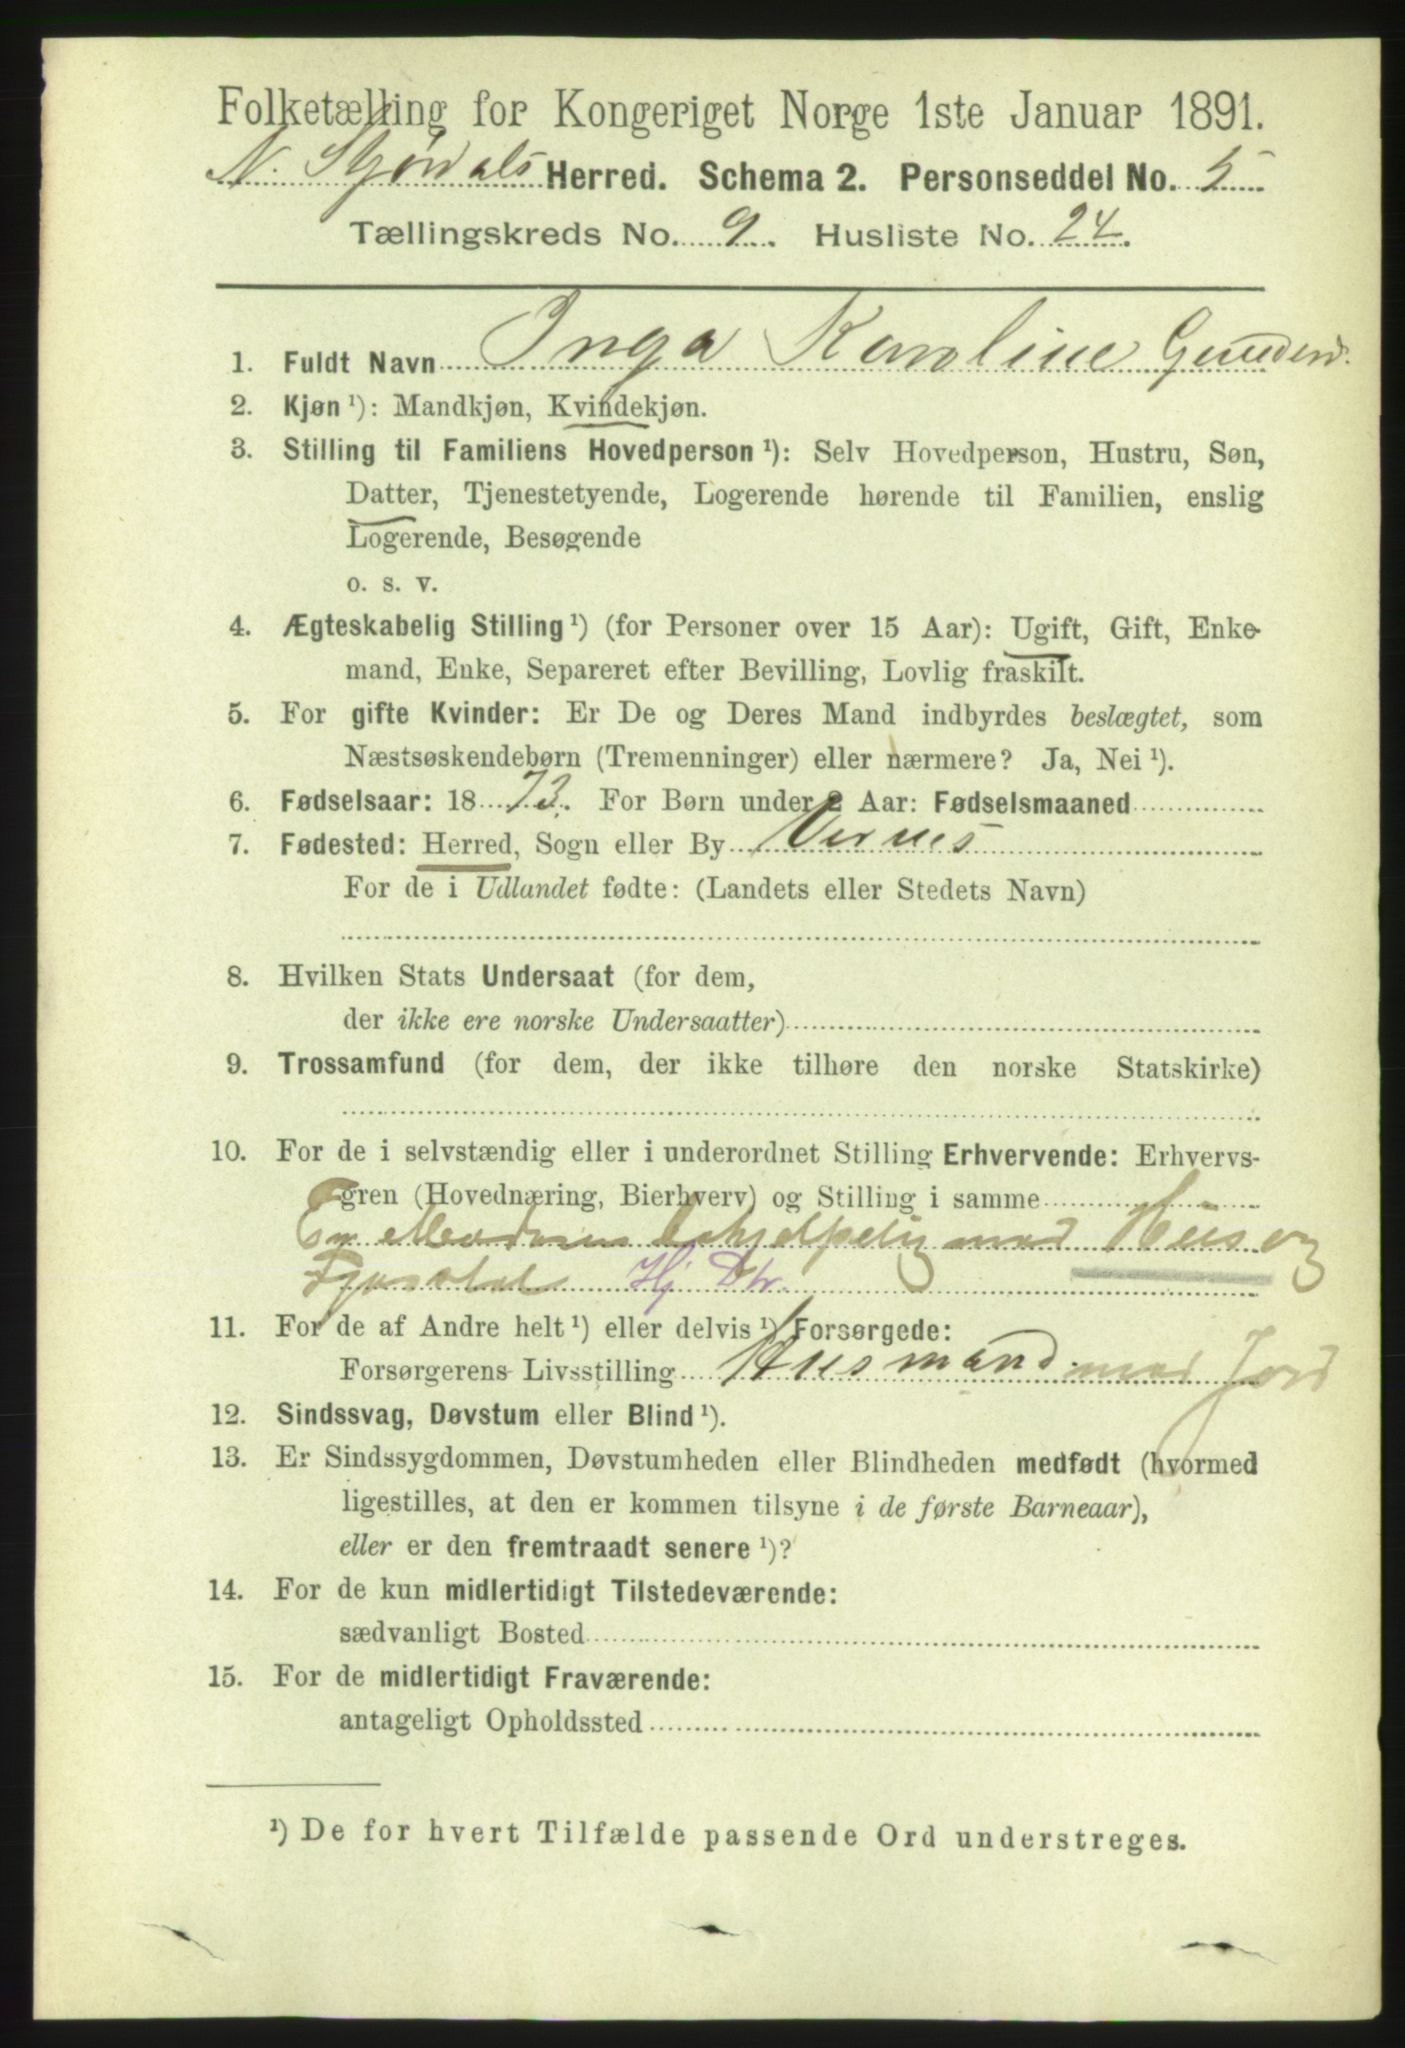 Folketælling for Kongeriget Norge 1ste Januar 1891.
N. Stjørdals Herred. Schema 2. Personseddel No. 5
Tællingskreds No. 9. Husliste No. 24.
1. Fuldt Navn Inga Karoline
2. Kjøn ¹): Mandkjøn, Kvindekjøn.
3. Stilling til Familiens Hovedperson ¹): Selv Hovedperson, Hustru, Søn,
Datter, Tjenestetyende, Logerende hørende til Familien, enslig
Logerende, Besøgende
o. s. v.
4. Ægteskabelig Stilling ¹) (for Personer over 15 Aar): Ugift, Gift, Enke-
mand, Enke, Separeret efter Bevilling, Lovlig fraskilt.
5. For gifte Kvinder: Er De og Deres Mand indbyrdes beslægtet, som
Næstsøskendebørn (Tremenninger) eller nærmere? Ja, Nei ¹).
6. Fødselsaar: 1873. For Børn under 2 Aar: Fødselsmaaned
7. Fødested: Herred, Sogn eller By Vernes
For de i Udlandet fødte: (Landets eller Stedets Navn)
8. Hvilken Stats Undersaat (for dem,
der ikke ere norske Undersaatter)
9. Trossamfund (for dem, der ikke tilhøre den norske Statskirke)
10. For de i selvstændig eller i underordnet Stilling Erhvervende: Erhvervs-
gren (Hovednæring, Bierhverv) og Stilling i samme
Er Moderen behjelpelig med Huus og
Fjøsstel Hj Dtr.
11. For de af Andre helt ¹) eller delvis ¹) Forsørgede:
Forsørgerens Livsstilling Husmand med Jord
12. Sindssvag, Døvstum eller Blind ¹).
13. Er Sindssygdommen, Døvstumheden eller Blindheden medfødt (hvormed
ligestilles, at den er kommen tilsyne i de første Barneaar),
eller er den fremtraadt senere ¹)?
14. For de kun midlertidigt Tilstedeværende:
sædvanligt Bosted
15. For de midlertidigt Fraværende:
antageligt Opholdssted
¹) De for hvert Tilfælde passende Ord understreges.